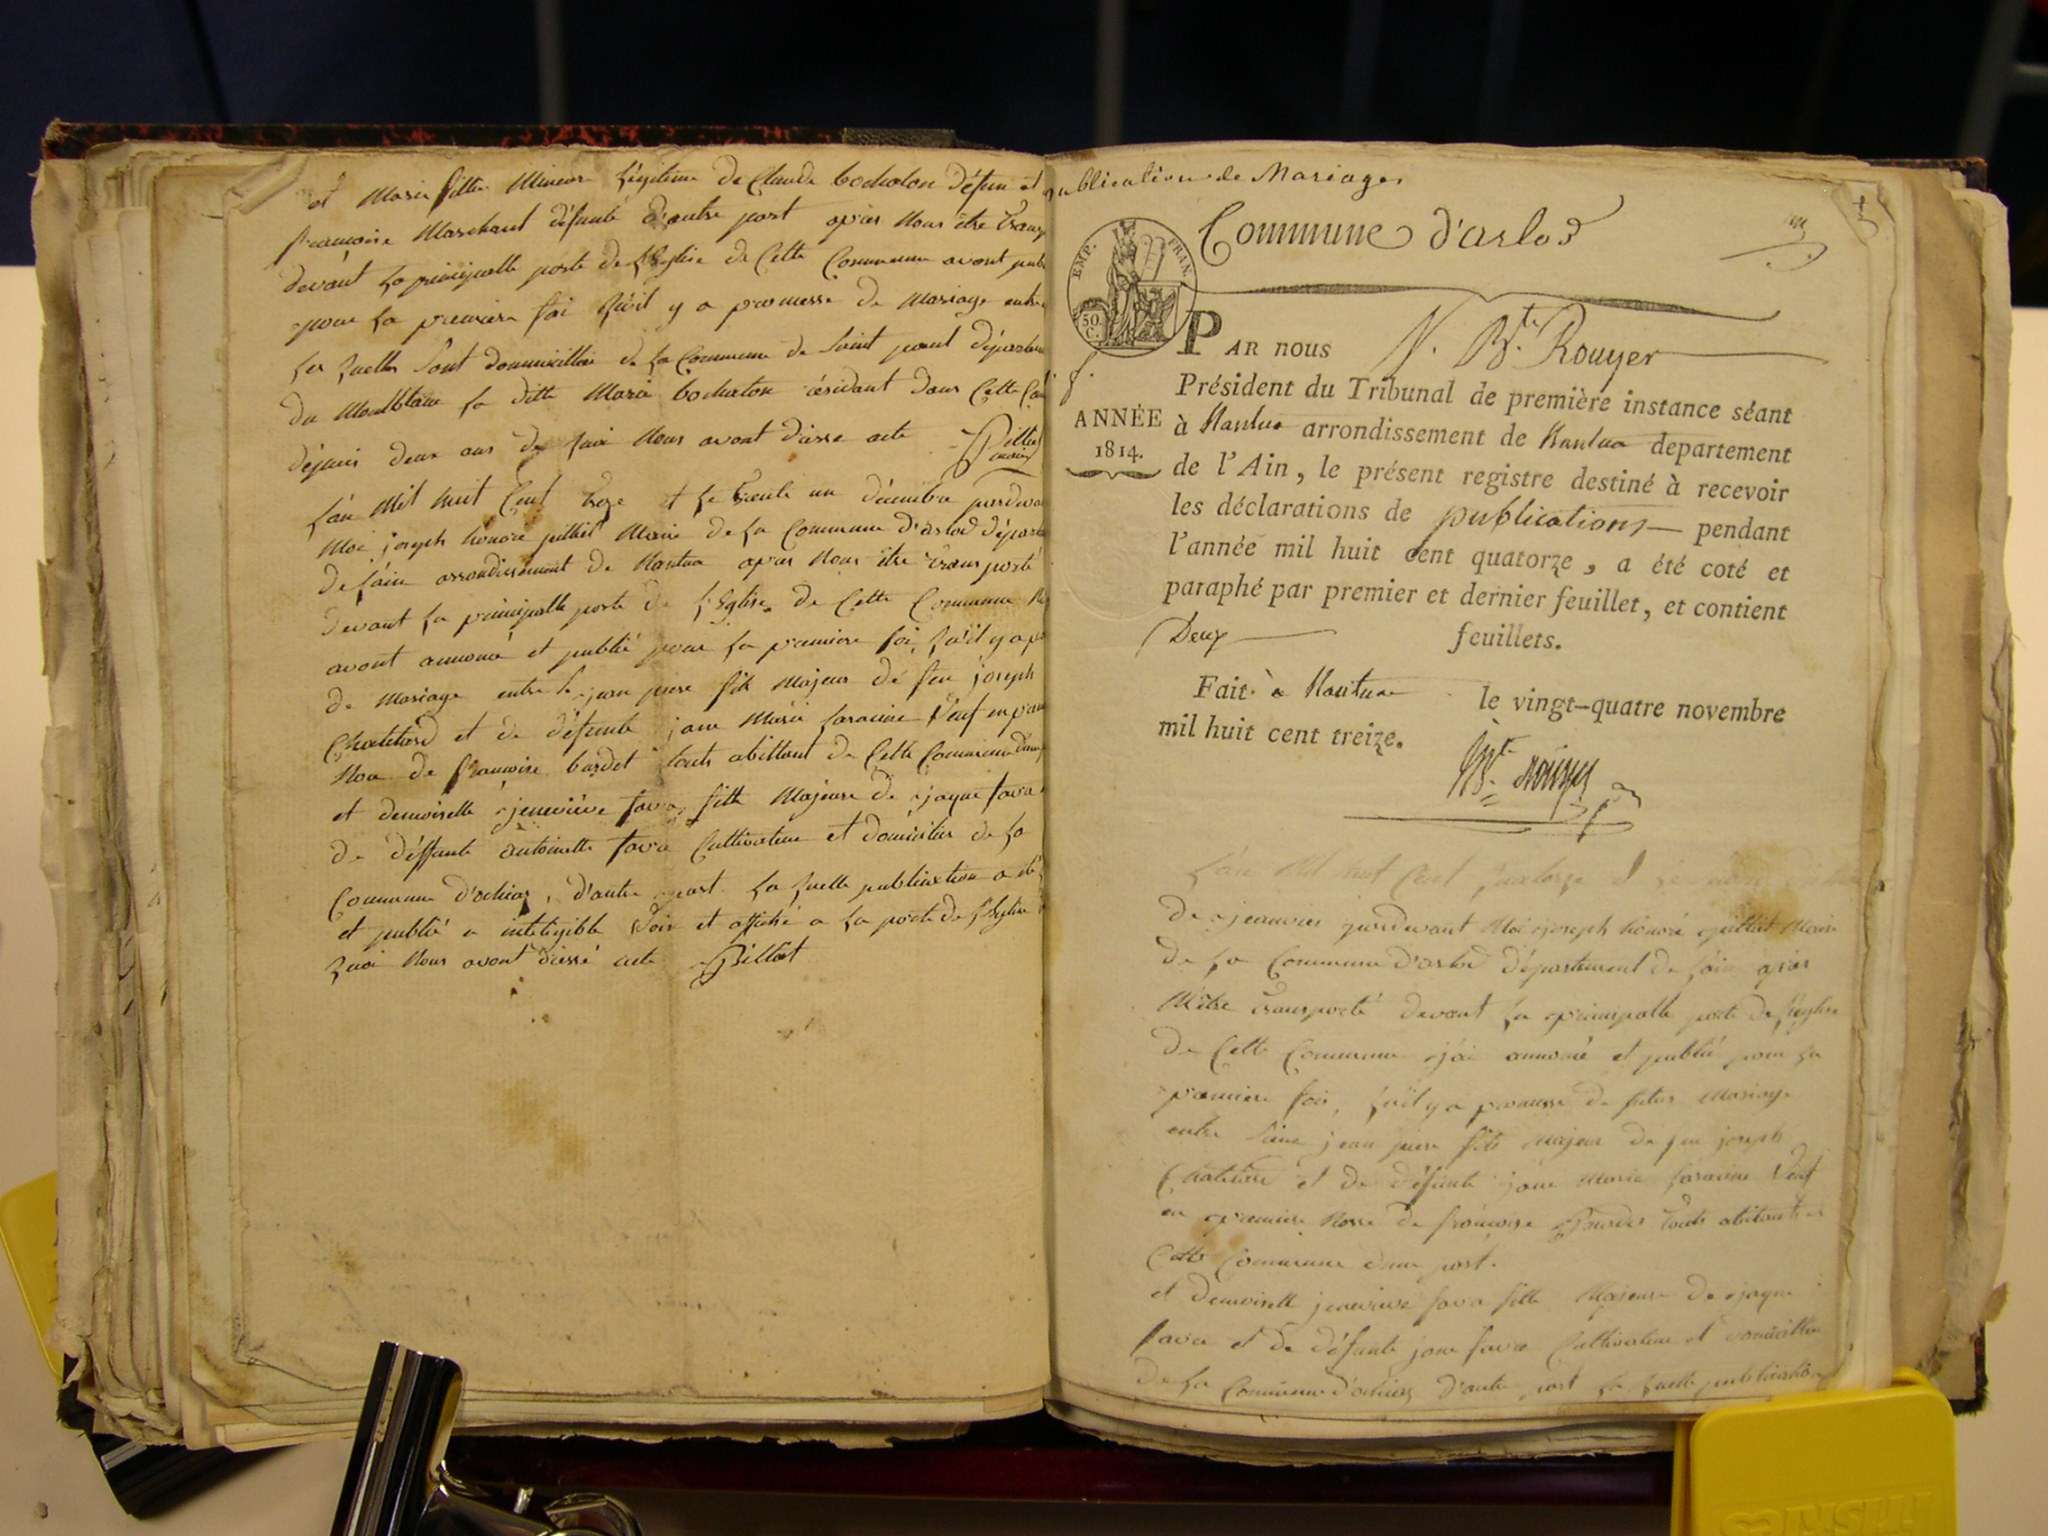 et Marie fille Mineure légitime de Claude bochaton défun et
françoise Marchant défunte d'autre part apres Nous être transp
devant La principalle porte de L'Eglise de Cette Commune avont pub
pour La premiere foi Qu'il y a promesse de Mariage entre
Les quelles Sont domicillies de La Commune de Saint paul départem
du Montblanc La ditte Marie bochaton résidant dans Cette Com
dépuis deux ans de quoi Nous avont dressé acte Pilliet
L'an Mil huit Cent treze et Le trente un décembre pardevan
Moi joseph honoré pilliet Maire de La Commune d'arlod départe
de L'ain arrondissement de Nantua apres Nous être transporté
devant La principalle porte de L'Eglise de Cette Commune
avont annoncé et publié pour La premiere foi, Qu'il y a pr
de Mariage entre jean piere fils Majeur de feu joseph
Chatelard et de défunte jane Marie Veuf en prem
Noce de françoise toute abittant de Cette Commune d'une
et demoiselle jeneviève fava fille Majeure de jaque fava
de défunte antoinette fava Cultivateur et domicilies de La
Commune d'ochiaz, d'autre part La quelle publication a été
et publié a inteligible Voix et affiché a La porte de L'Eglise
quoi Nous avont dressé acte Pilliet
publication de Mariages
Commune d'arlod
EMP. FRAN.
50 C.
PAR NOUS N. Bte. Rouyer
Président du Tribunal de première instance séant
ANNÉE
1814.
à Nantua arrondissement de Nantua departement
de l'Ain, le présent registre destiné à recevoir
les déclarations de publications pendant
l'année mil huit cent quatorze, a été coté et
paraphé par premier et dernier feuillet, et contient
Deux feuillets.
Fait à Nantua le vingt-quatre novembre
mil huit cent treize.
Bte. Rouyer
L'an Mil huit Cent quatorze et Le
de jeanvier pardevant Moi joseph honoré pilliet Maire
de La Commune d'arlod département de L'ain apres
M'être transporté devant La principalle porte de L'eglise
de Cette Commune j'ai annoncé et publié pour La
premiere foi, Qu'il y a promesse de futur Mariage
entre jean piere fils Majeur de feu joseph
Chatelard et de défunte jane Marie Veuf
en premiere Nosse de françoise toute abitant de
Cette Commune d'une part.
et demoiselle jenevieve fava fille Majeure de jaque
fava et de défunte jane fava Cultivateur et domicillie
de La Commune d'ochiaz d'autre part La quelle publication